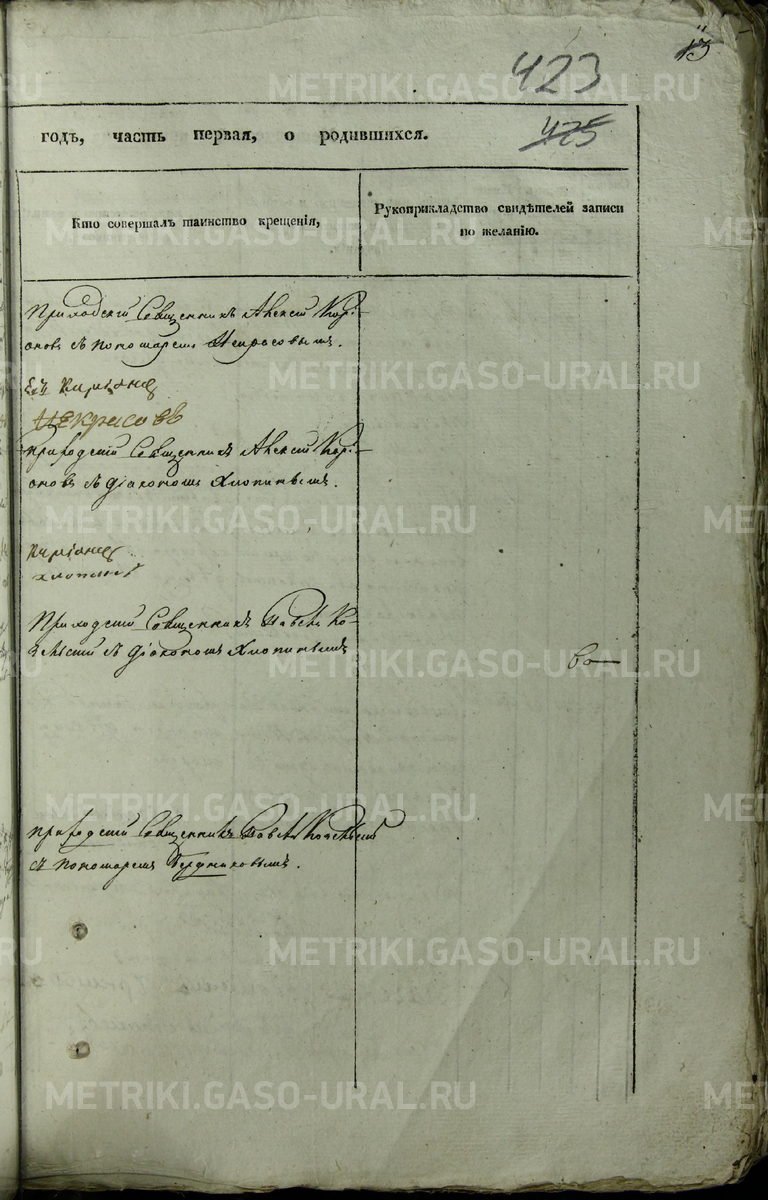 13
423
425
годъ, часть первая, о родившихся.
Кто совершалъ таинство крещенія,
Рукоприкладство свидѣтелей записи по желанію.
Приходскій Священникъ Алексій Киріановъ съ пономаремъ Некрасовымъ.
Киріановъ
Некрасовъ
Приходскій Священникъ Алексій Киріановъ съ діакономъ Хлопинымъ.
Киріановъ
Хлопинъ
Приходскій Священникъ Павелъ
съ діакономъ Хлопинымъ
Приходскій Священникъ Павелъ
съ пономаремъ Бердниковымъ.
METRIKI.GASO-URAL.RU